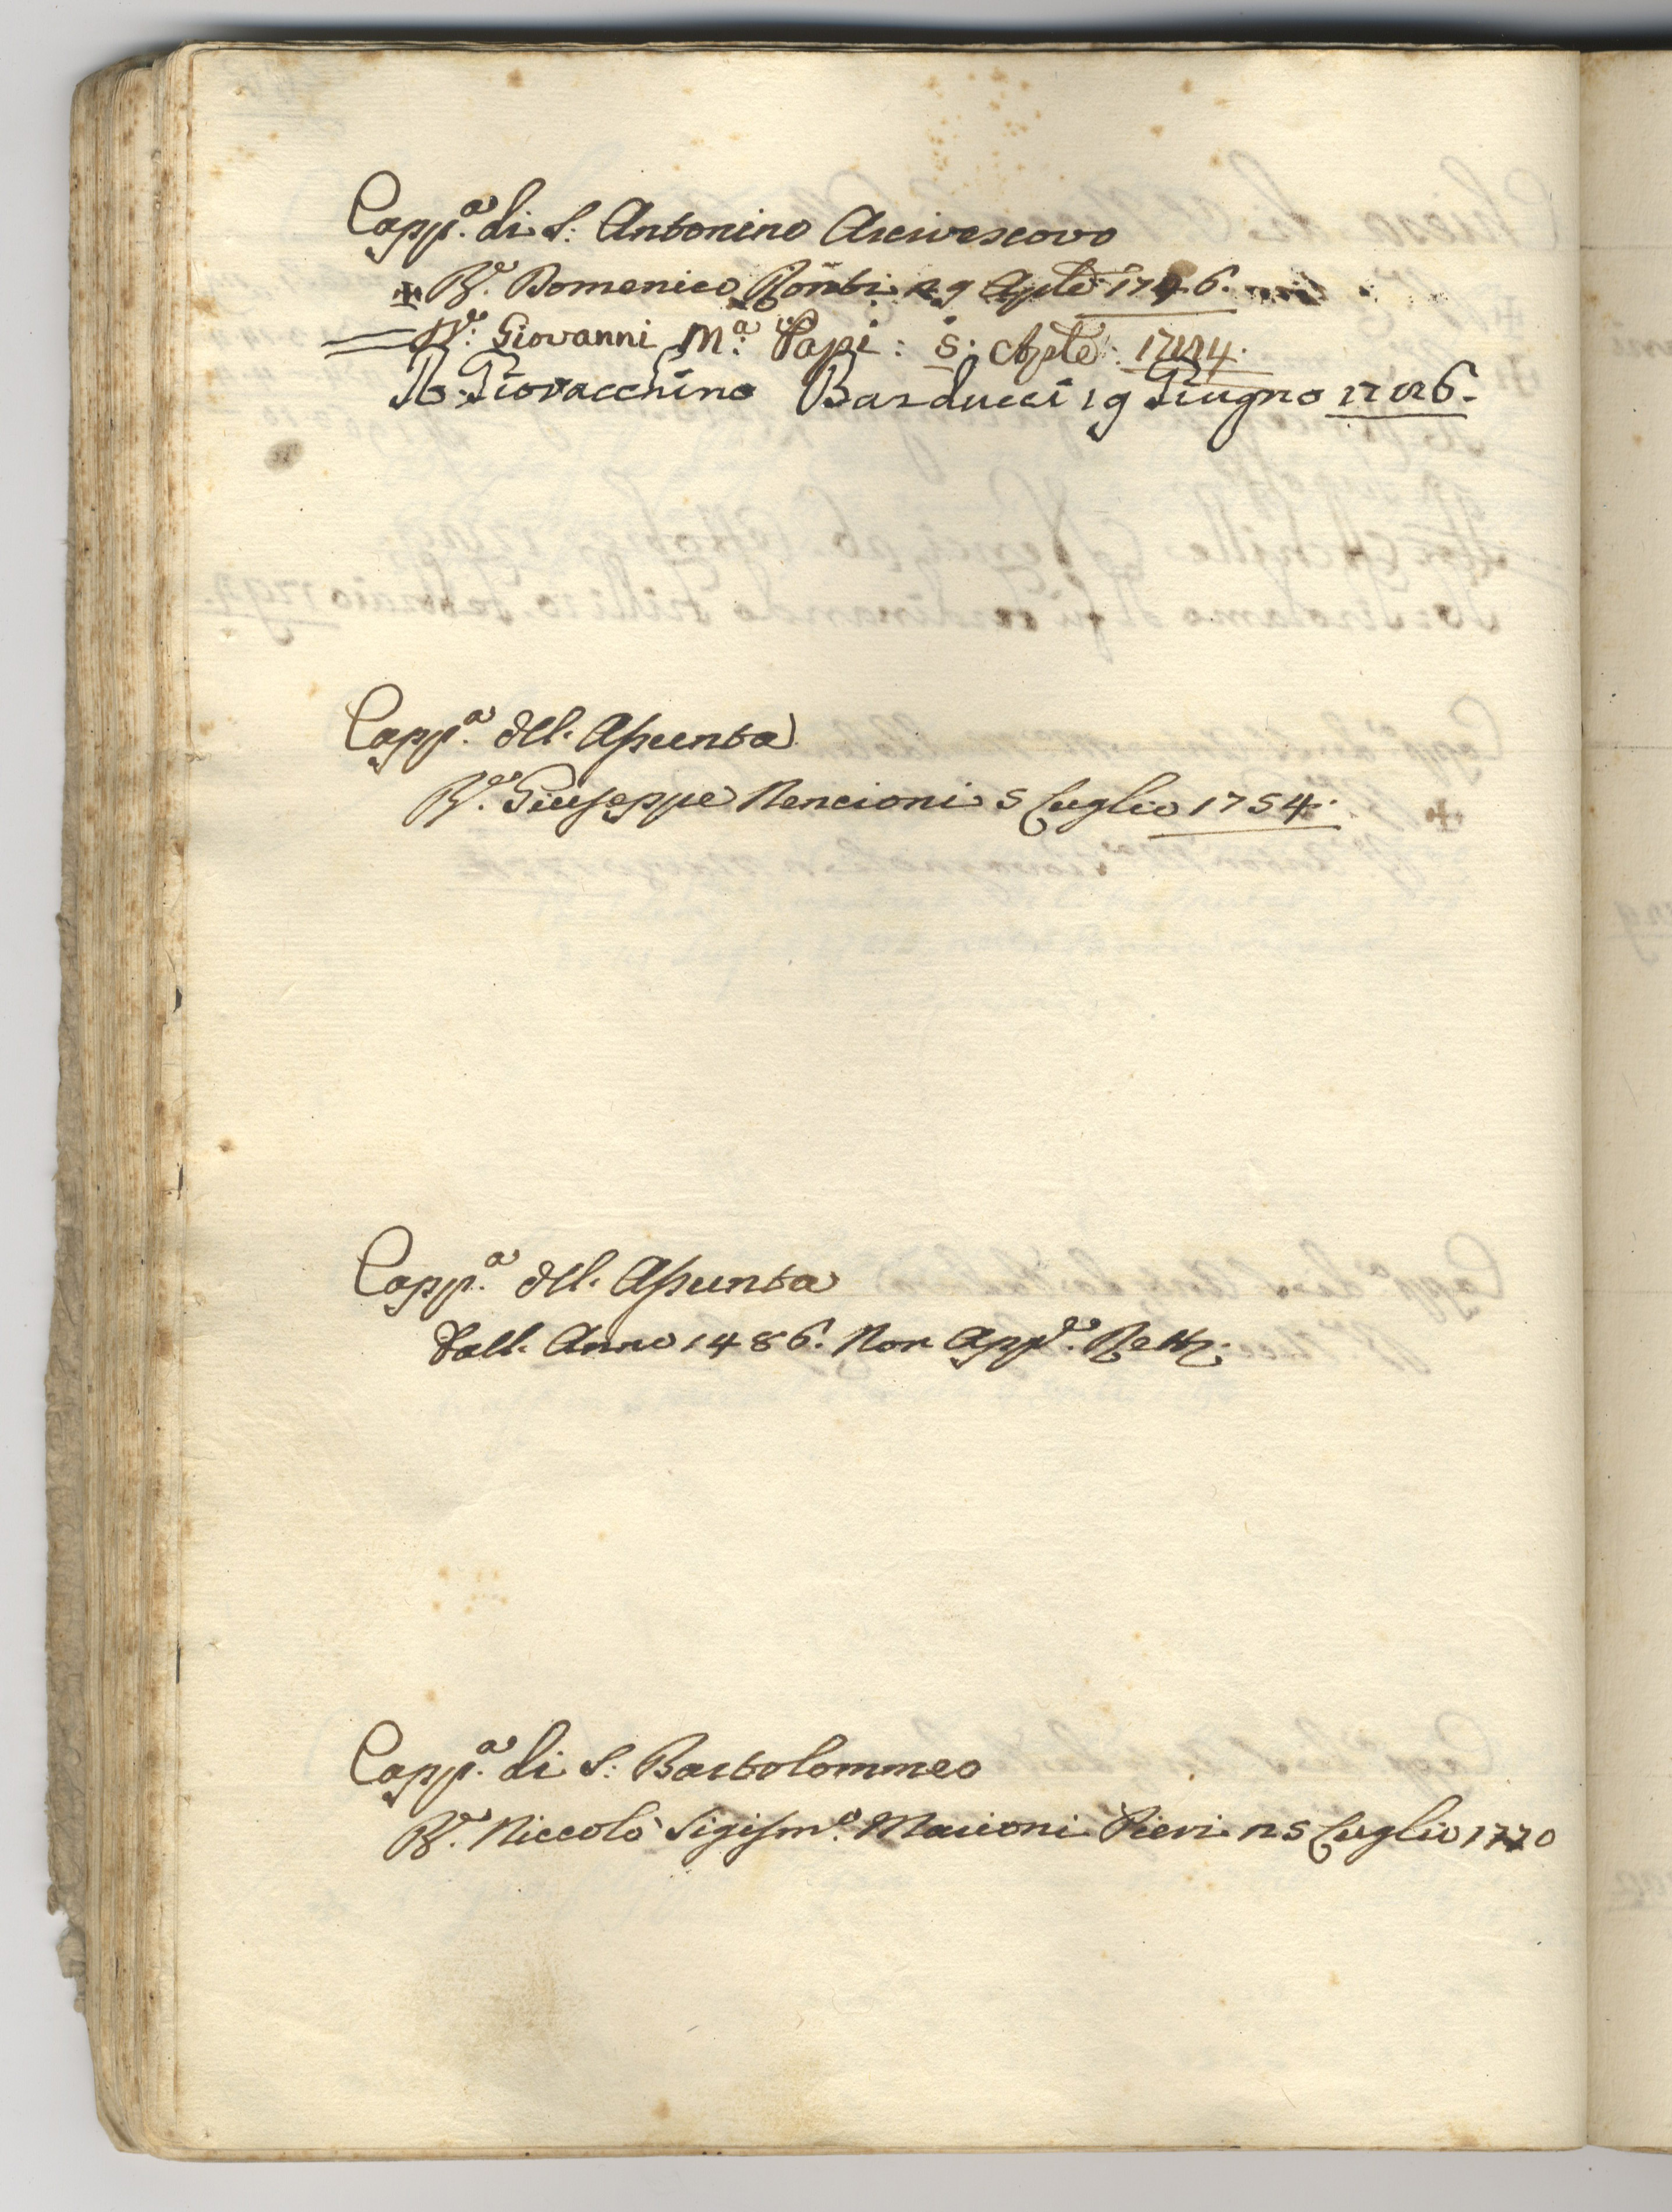 Capp.ª di S. Antonino Arcivescovo
R.º Domenico Ronti 29 Aple 1746.
R.º Giovanni M.ª Papi: 5: Aple: 1724.
R. Giovacchino Barducci 19 Giugno 1726.
Capp.ª dell. Assunta
R.º Giuseppe Nencioni 5 Luglio 1754.
Capp.ª dell. Assunta
Dall. Anno 1486. Non App.º Rett.
Capp.ª di S. Bartolommeo
R.º Niccolò Sigism.º Marioni Pieri 25 Luglio 1720